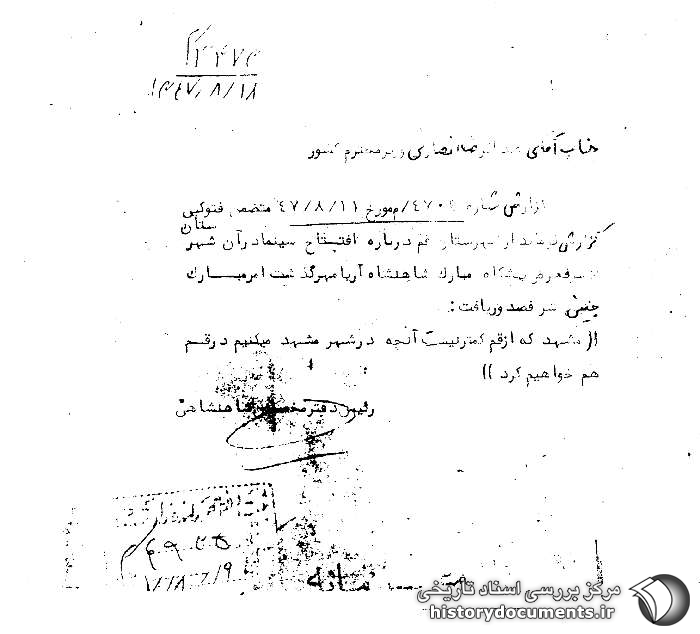 ۱۳۴۷/۸/۱۸
جناب آقای عبدالرضا انصاری وزیر محترم کشور
گزارش شماره ۴۷۰۴/م مورخ ۴۷/۸/۱۱ متضمن فتوکپی
گزارش فرماندار شهرستان قم درباره افتتاح سینما در آن شهرستان
از شرفعرض پیشگاه مبارک شاهنشاه آریامهر گذشت امر مبارک
چنین شرفصدور یافت :
(( مشهد که از قم کمتر نیست آنچه در شهر مشهد میکنیم در قم
هم خواهیم کرد ))
رئیس دفتر مخصوص شاهنشاهی
مرکز بررسی اسناد تاریخی
historydocuments.ir